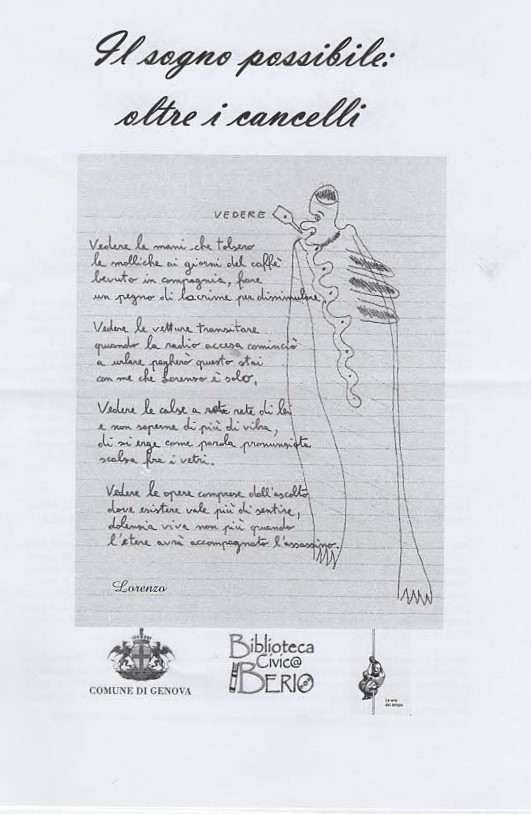 Il sogno possibile:
oltre i cancelli
VEDERE
Vedere le mani che tolsero
le molliche ai giorni del caffè
bevuto in compagnia, fare
un pegno di lacrime per dissimulare.
Vedere le vetture transitare
quando la radio accesa cominciò
a urlare pagherò questo stai
con me che Lorenzo è solo,
Vedere le calse a rete di lei
e non saperne di più di vibra,
di si erge come parola pronunsiata
scalsa fra i vetri.
Vedere le opere comprese dall'ascolto
dove esistere vale più di sentire,
dolensia viva non più quando
l'etere avrà accompagnato l'assassino.
Lorenzo
COMUNE DI GENOVA
Biblioteca
Civic@
BERIO